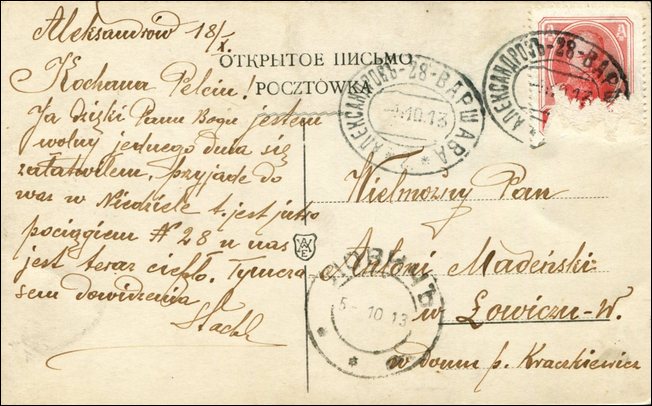 Aleksandrów 18/X.
ОТКРЫТОЕ ПИСЬМО
POCZTÓWKA
Kochana Pelciu!
Ja dzięki Panu Bogu jestem
wolny jednego dnia się
załatwiłem, przyjadę do
was w Niedzielę t. jest jutro
pociągiem № 28 u nas
jest teraz ciepło. Tymcza
sem dowidzenia
АЛЕКСАНДРОВЪ-28-ВАРШАВА
10.13
АЛЕКСАНДРОВЪ-28-ВАРШ
Wielmożny Pan
Antoni Madeński
w Łowiczu-W.
w domu p. Kraczkiewicz
ЛОВИЧЪ
5-10 13